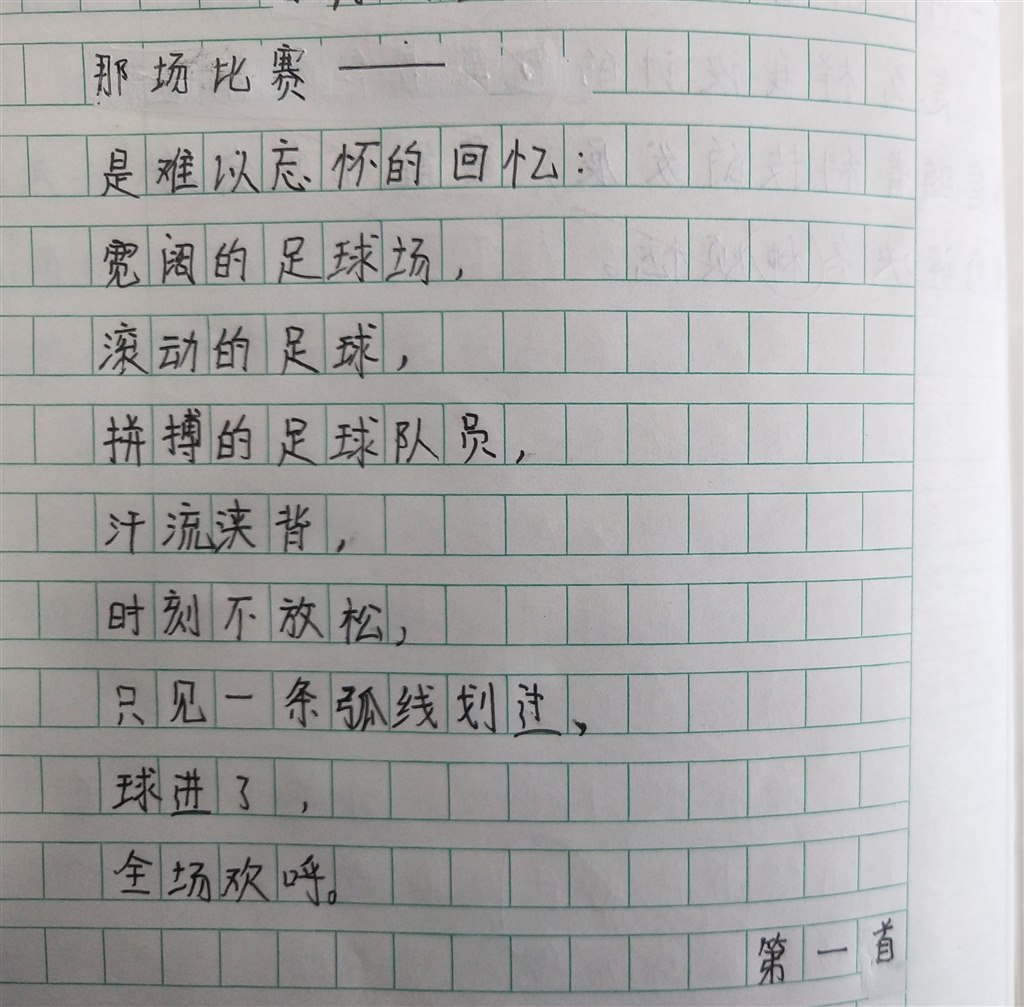 那场比赛——
是难以忘怀的回忆：
宽阔的足球场，
滚动的足球，
拼搏的足球队员，
汗流浃背，
时刻不放松，
只见一条弧线划过，
球进了，
全场欢呼。
第一首